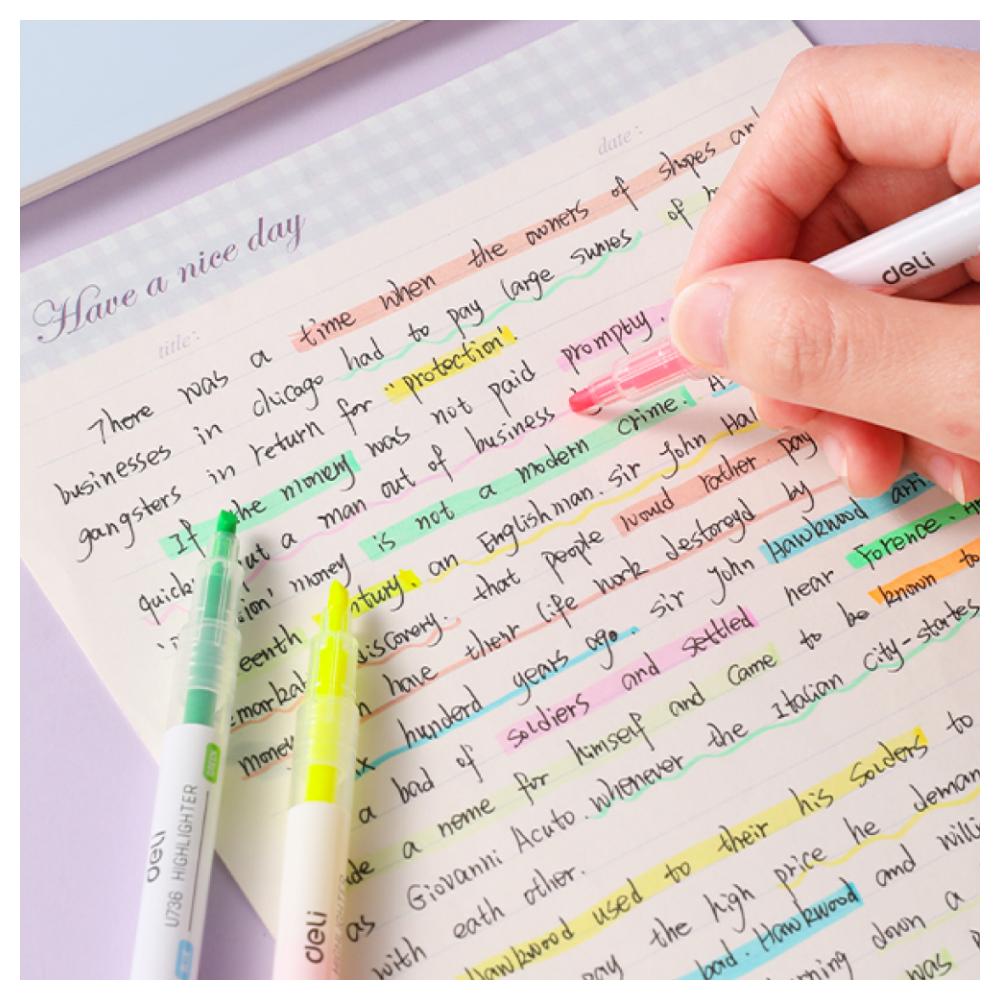 Have a nice day
title:
date:
There was a time when the owners of shopes an
businesses in chicago had to pay large sumes of
gangsters in return for "protection".
If the money was not paid promptly.
quick ut a man out of business
money is not a modern crime.
eenth ntury. an Englishman. sir John Hal
emarkab discovery. that people would rather pay
money have their life work destoroyd by
x hunderd years ago. sir John Hawkwood arti
a bad of soldiers and settled near Forence.
de a name for himself and came to be known to
as Giovanni Acuto. whenever the Italian city-startes
with eath other.
Hawkwood used to their his Solders to
pay the high price he deman
bad. Hawkwood and willi
rning down a
was
deli
deli
U736 HIGHLIGHTER
GREEN
deli